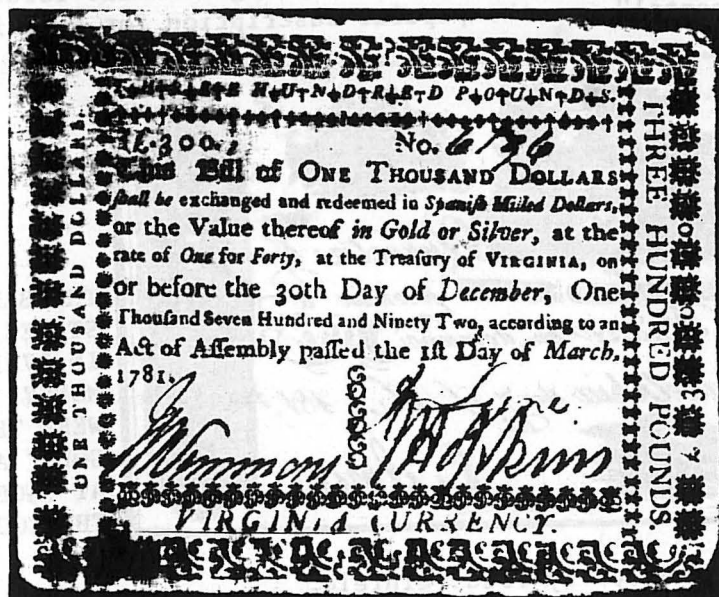 THREE HUNDRED POUNDS.
£.300.
No.
This Bill of ONE THOUSAND DOLLARS
ſhall be exchanged and redeemed in Spaniſh Milled Dollars,
or the Value thereof in Gold or Silver, at the
rate of One for Forty, at the Treaſury of VIRGINIA, on
or before the 30th Day of December, One
Thouſand Seven Hundred and Ninety Two, according to an
Act of Aſſembly paſſed the 1ſt Day of March,
1781.
Simmons
Hopkins
VIRGINIA CURRENCY.
ONE THOUSAND DOLLARS.
THREE HUNDRED POUNDS.